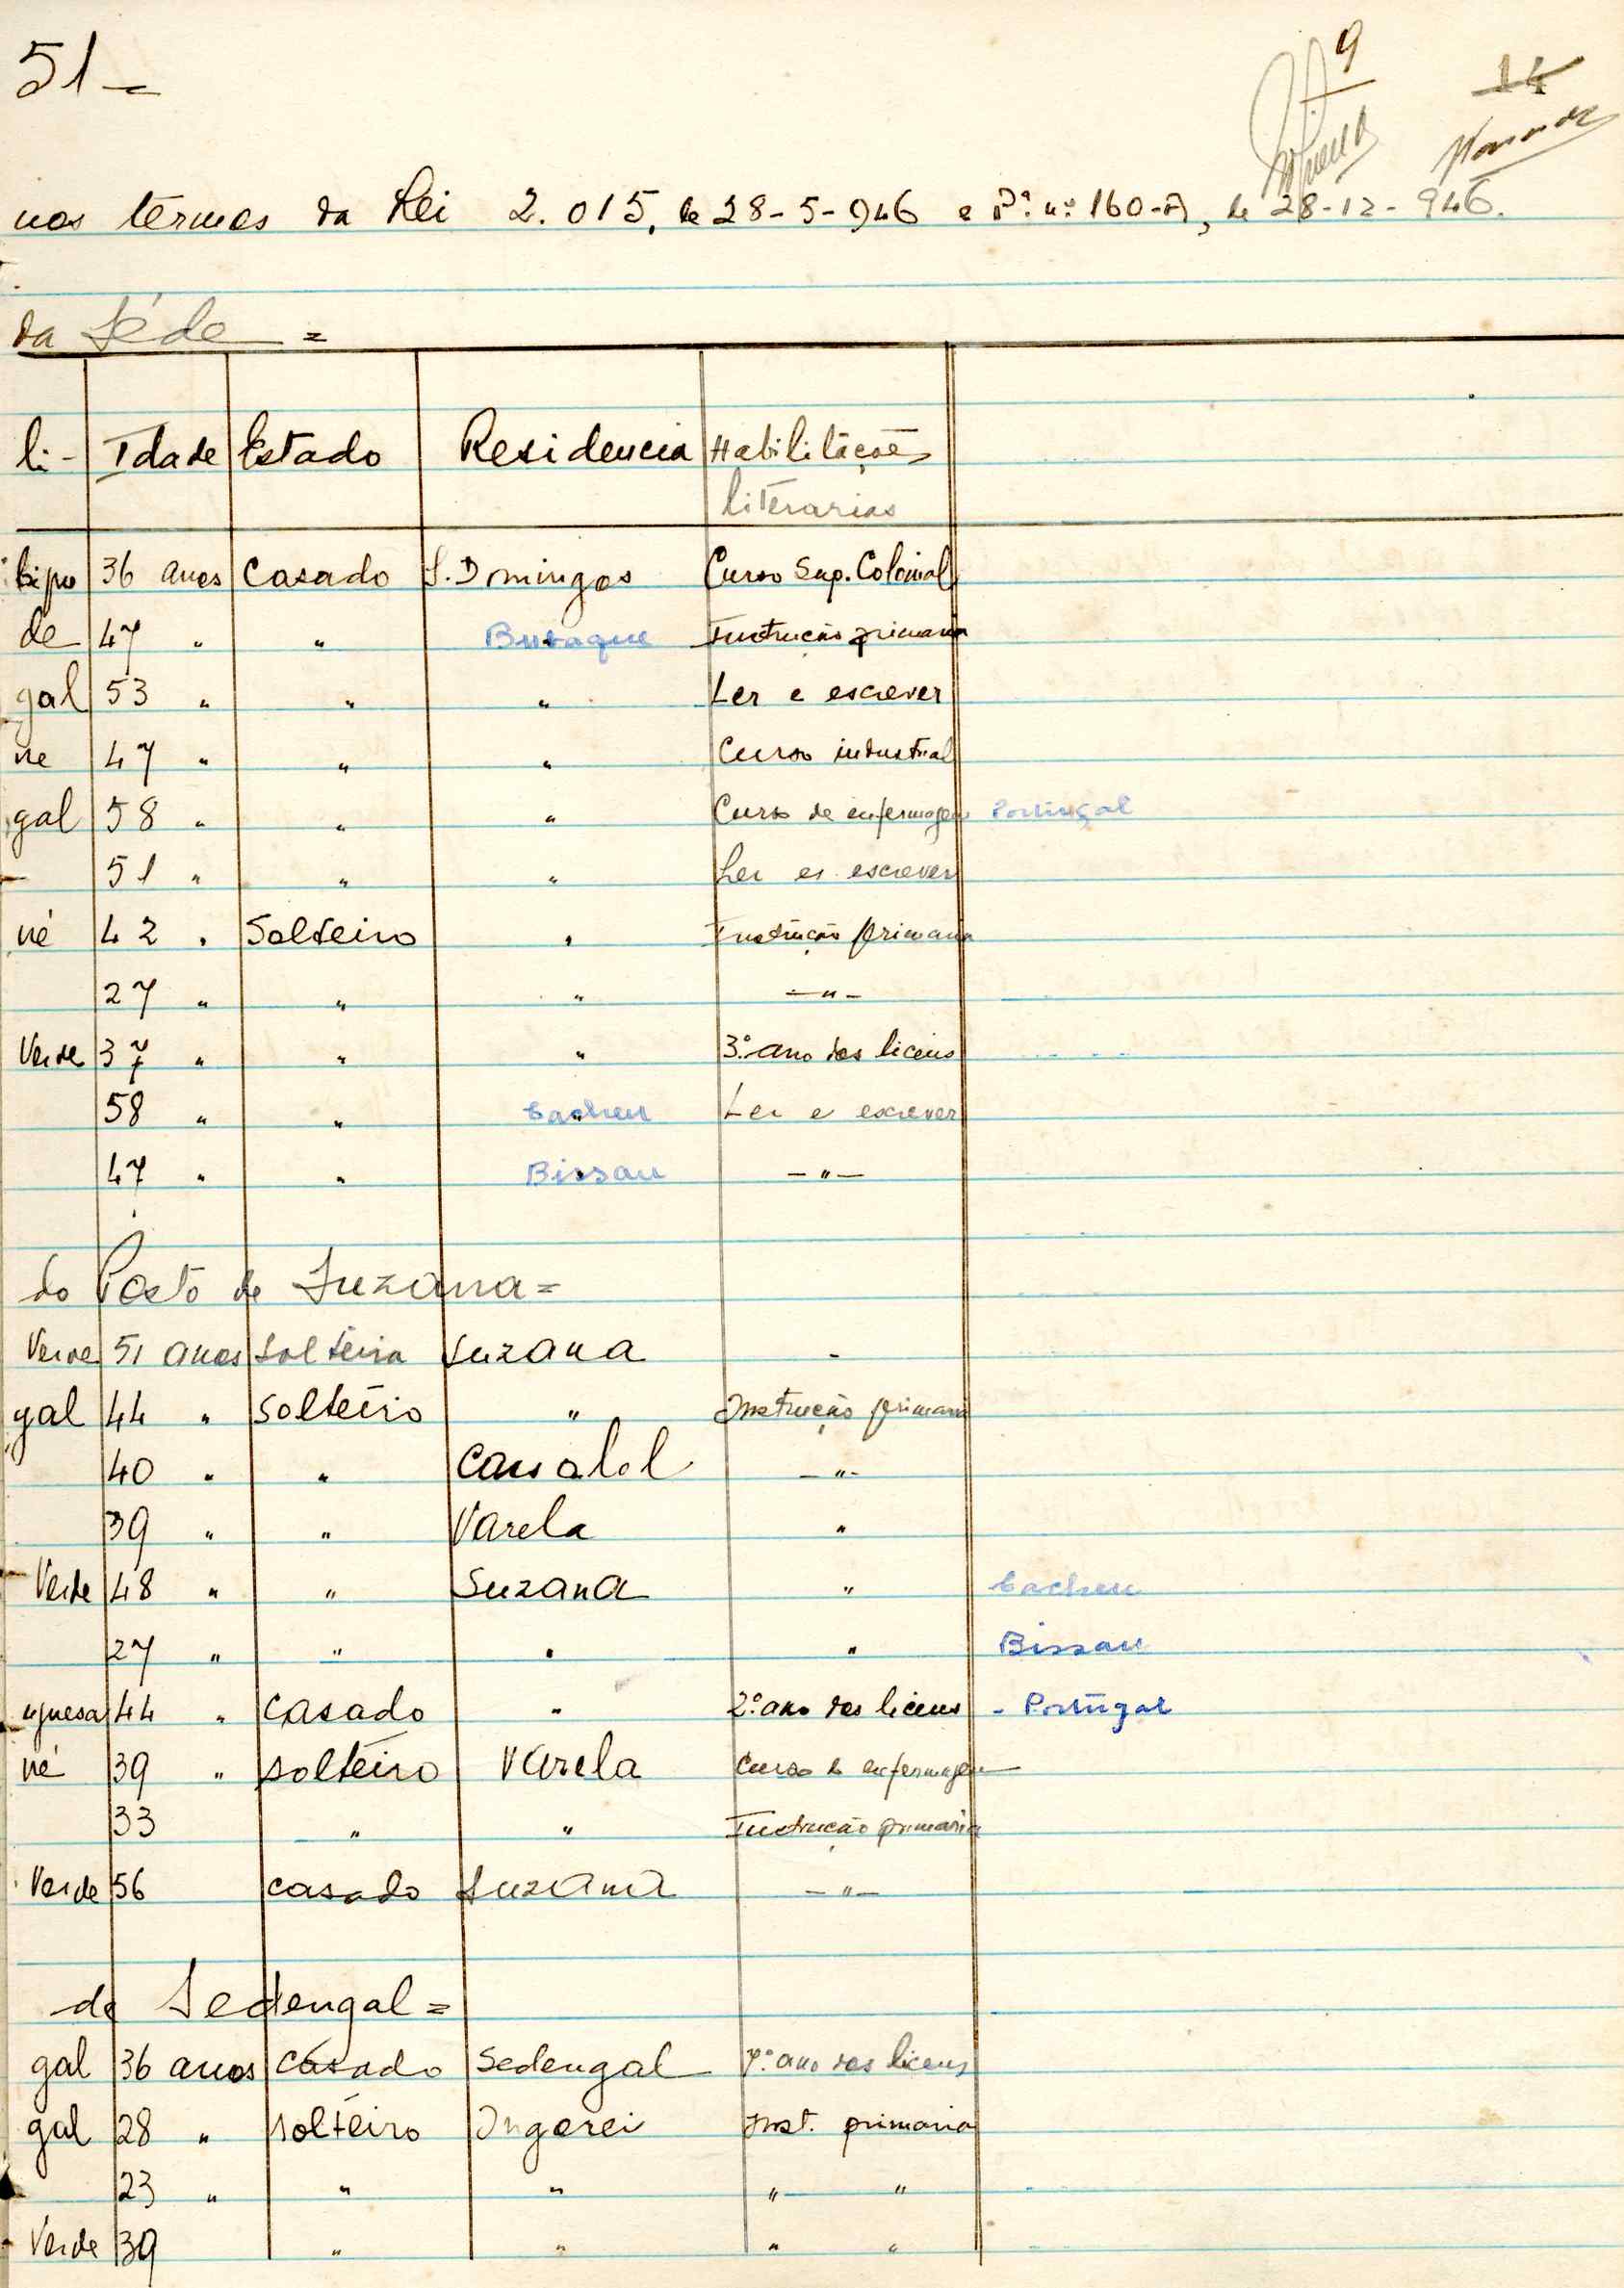 51=
9
14
nos têrmos da Lei 2.015, de 28-5-946 e P.ª n.º 160-A, de 28-12-946.
da Séde =
li- Idade Estado Residencia Habilitações
literarias
36 anos Casado S. Domingos Curso Sup. Colonial
de 47 " " Bubaque Instrução primaria
gal 53 " " " Ler e escrever
né 47 " " " Curso industrial
gal 58 " " " Curso de enfermagem Portugal
51 " " " Ler e escrever
né 42 " Solteiro " Instrução primaria
27 " " " -"-
Verde 37 " " " 3.º ano dos liceus
58 " " Cacheu Ler e escrever
47 " " Bissau -"-
do Posto de Suzana=
Verde 51 anos Solteira Suzana -
gal 44 " Solteiro " Instrução primaria
40 " " Cassalol -"-
39 " " Varela "
Verde 48 " " Suzana " Cacheu
27 " " " " Bissau
uguesa 44 " Casado " 2.º ano dos liceus - Portugal
né 39 " solteiro Varela Curso de enfermagem
33 " " Instrução primária
Verde 56 casado Suzana -"-
de Sedengal=
gal 36 anos Casado Sedengal 7.º ano dos liceus
gal 28 " solteiro Ingorei Inst. primaria
23 " " " " "
Verde 39 " " " "